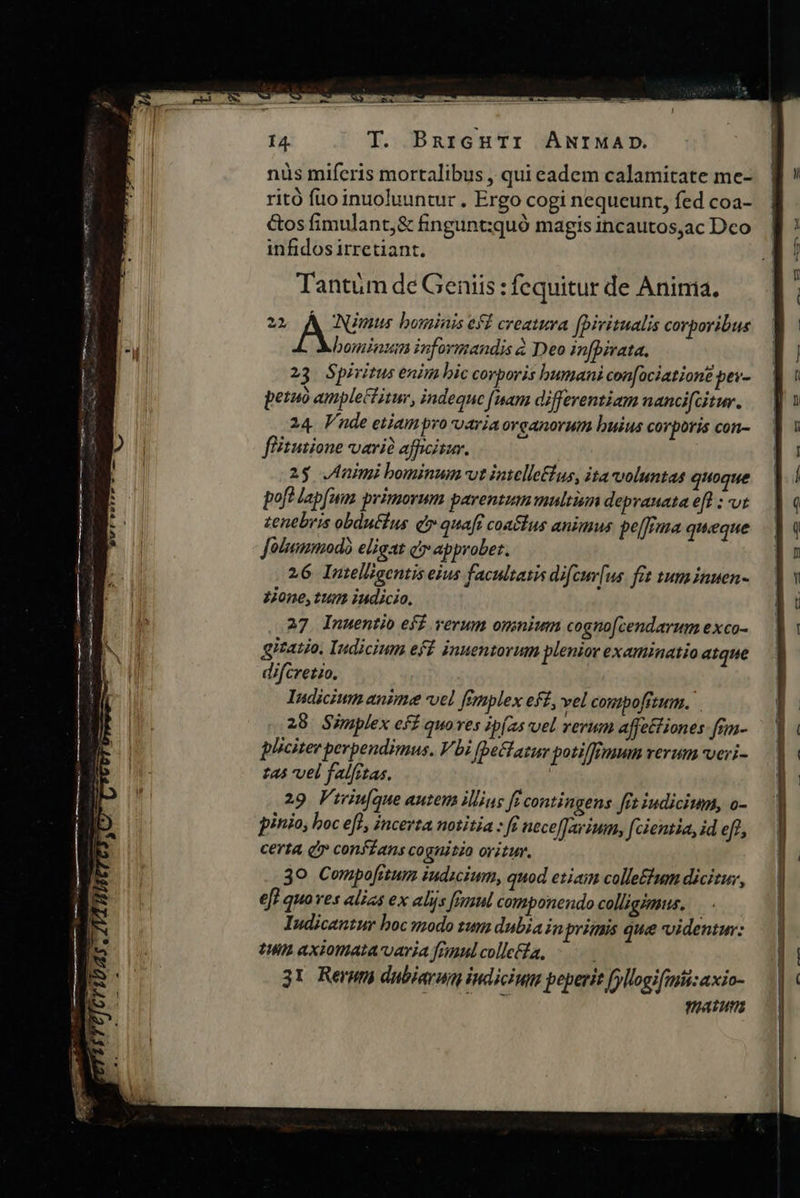 14 T. BRIGHTI ANIMAD.
nùs miſeris mortalibus, qui eadem calamitate me-
ritò ſuo inuoluuntur. Ergo cogi nequeunt, ſed coa-
ctos ſimulant, & fingunt: quò magis incautos, ac Deo
infidos irretiant.
Tantùm de Geniis: ſequitur de Anima.
22 ANimus hominis eſt creatura ſpiritualis corporibus
hominum informandis à Deo inſpirata.
23 Spiritus enim hic corporis humani conſociationē per-
petuò amplectitur, indeque ſuam differentiam nanciſcitur.
24 Vnde etiam pro varia organorum huius corporis con-
ſtitutione variè afficitur.
25 Animi hominum vt intellectus, ita voluntas quoque
poſt lapſum primorum parentum multùm deprauata eſt: vt
tenebris obductus & quaſi coactus animus peſſima quæque
ſolummodò eligat & approbet.
26 Intelligentis eius facultatis diſcurſus ſit tum inuen-
tione, tum iudicio.
27 Inuentio eſt rerum omnium cognoſcendarum exco-
gitatio. Iudicium eſt inuentorum plenior examinatio atque
diſcretio.
Iudicium animæ vel ſimplex eſt, vel compoſitum.
28 Simplex eſt quo res ipſas vel rerum affectiones ſim-
pliciter perpendimus. Vbi ſpectatur potiſſimum rerum veri-
tas vel falſitas.
29 Vtriuſque autem illius ſi contingens ſit iudicium, o-
pinio, hoc eſt, incerta notitia: ſi neceſſarium, ſcientia, id eſt,
certa & conſtans cognitio oritur.
30 Compoſitum iudicium, quod etiam collectum dicitur,
eſt quo res alias ex alijs ſimul componendo colligimus.
Iudicantur hoc modo tum dubia in primis quæ videntur:
tum axiomata varia ſimul collecta.
31 Rerum dubiarum iudicium peperit ſyllogiſmū: axio-
matum